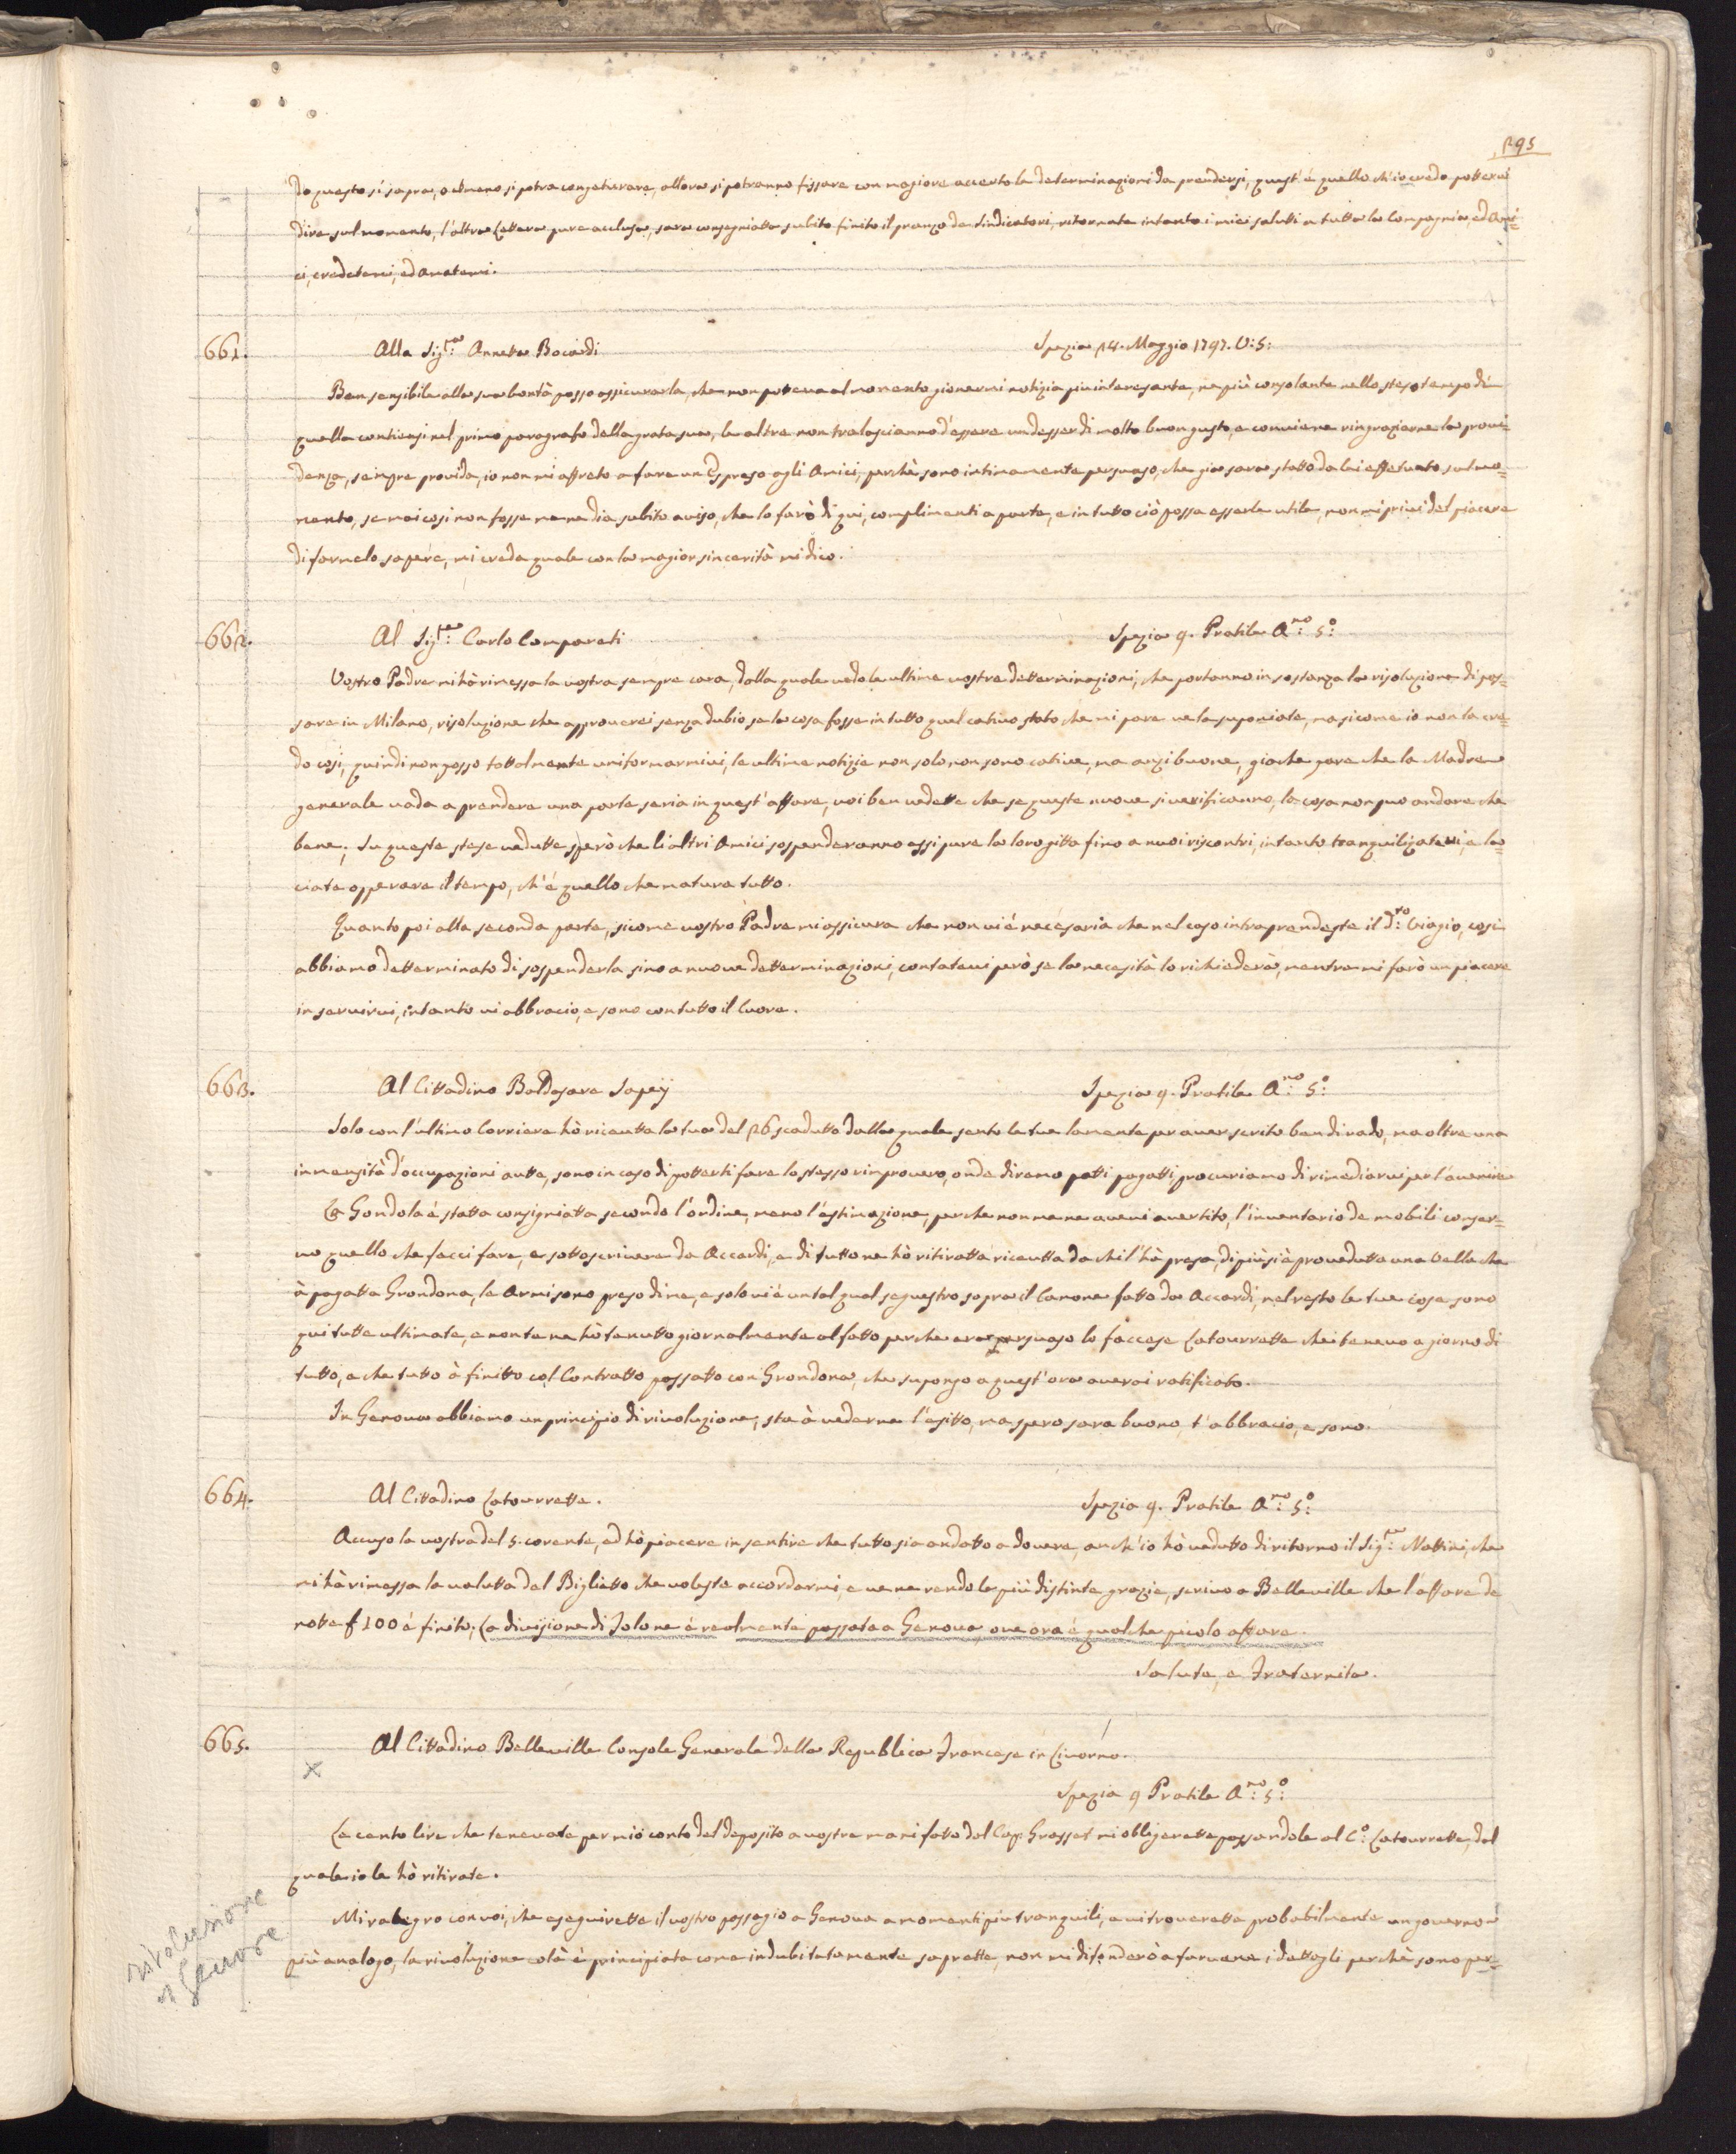 295
do questo si sapra, o almeno si potra congieturare, allora si potranno fissare con magiore accerto le determinazioni da prendersi, quest' é quello ch'io credo potterui
dire sul momento, l'altra Lettera pure acclusa, sara consegniatta subito finito il pranzo de Sindicatori, ritornate intanto i miei saluti a tutta la Compagnia, ed Ami=
ci, credetemi, ed amatemi.
661. Alla Sig:ra Annetta Bocardi Spezia 24. Maggio 1797. V: S:
Ben sensibile alla sua bontà posso assicurarla, che non poteva al momento gionermi notizia piu interesante, ne più consolante nello steso tempo di
quella contiensi nel primo paragrafo della grata sua, le altre non tralasciano d'essere un desser di molto buon gusto, e conviene ringraziarne la provi=
denza, sempre provida, io non mi affreto a fare un Espreso agli Amici, perchè sono intimamente persuaso, che gia sara statto da lei effetuato sul mo=
mento, se mai cosi non fosse me ne dia subito aviso, che lo farò di qui, complimenti a parte, e in tutto ciò possa esserle utile, non mi privi del piacere
di farmelo sapere, mi creda quale con la magior sincerità mi dico.
662. Al Sig:re Carlo Compareti Spezia 9. Pratile A:no 5:o
Vostro Padre mi hà rimessa la vostra sempre cara, dalla quale vedo le ultime vostre detterminazioni, che portanno in sostanza la risoluzione di pas=
sare in Milano, risoluzione che approverei senza dubio se la cosa fosse in tutto quel cativo stato che mi pare ve la suponiate, ma sicome io non la cre=
do cosi, quindi non posso tottalmente uniformarmivi, le ultime notizie non solo non sono cative, ma anzi buone, giache pare che la Madre
generale vada a prendere una parte seria in quest'affare, voi ben vedette che se queste nuove si verificanno, la cosa non puo andare che
bene; Su queste stese vedutte sperò che li altri Amici sospenderanno essi pure la loro gitta fino a nuovi riscontri, intanto tranquilizatevi, e la=
ciate opperare il tempo, ch'é quello che matura tutto.
Quanto poi alla seconda parte, sicome vostro Padre mi assicura che non vi é necesaria che nel caso intraprendeste il d:to Viagio, cosi
abbiamo detterminato di sospenderla sino a nuove detterminazioni, contatevi però se la necesità lo richiederà, mentre mi farò un piacere
in servirvi, intanto vi abbracio, e sono con tutto il Cuore.
663. Al Cittadino Baldasare Sapeij Spezia 9. Pratile A:no 5:o
Solo con l'ultimo Corriere hò ricevutta la tua del 26 scadutto dalla quale sento le tue lamente per aver scrito ben di rado, ma oltre una
immensità d'occupazioni autte, sono in caso di potterti fare lo stesso rimprovero, onde diremo patti pagatti, procuriamo di rimediarvi per l'avenire
La Gondola é statta consigniatta secondo l'ordine, meno l'estimazione, perche non me ne avevi avertito, l'inventario de mobili conser=
vo quello che facci fare, e sottoscrivere da Accardi, e di tutto ne hò ritiratta ricevutta da chi l'hà presa, di più si è provedutta una Vella che
à pagatta Grondona, le Armi sono preso di me, e solo vi é un tal qual sequestro sopra il Canone fatto da Accardi, nel resto le tue cose sono
qui tutte ultimate, e non te ne hò tenutto giornalmente al fatto perche ero persuaso lo faccese Latourrette che tenevo a giorno di
tutto, e che tutto à finitto col Contratto passatto con Grondona, che supongo a quest'ora averai ratificato.
In Genova abbiamo un principio di rivoluzione, sta à vederne l'esitto, ma spero sara buono, t'abbracio, e sono.
664. Al Cittadino Latourrette. Spezia 9. Pratile A:no 5:o
Accuso la vostra del 5. corente, ed hò piacere in sentire che tutto sia andatto a dovere, anch'io hò vedutto di ritorno il Sig:re Mattini, che
mi hà rimessa la valutta del Biglietto che voleste accordarmi, e ve ne rendo le più distinte grazie, scrivo a Belleville che l'affare de
notte £ 100 é finito; La divisione di Tolone é realmente passata a Genova, ove ora é qualche picolo affare.
Salute, e Fraternita.
665. Al Cittadino Belleville Console Generale della Republica Francese in Livorno.
Spezia 9 Pratile A:no 5:o
Le cento lire che tenevate per mio conto del deposito a vostre mani fatto dal Cap: Grasset mi obligerette passandole al C:o Latourrette, dal
quale io le hò ritirate.
Mi ralegro con voi, che eseguirette il vostro passagio a Genova a momenti piu tranquili, e vi troverette probabilmente un governo
più analogo, la rivoluzione colà é principiata come indubitatamente saprette, non mi difonderò a farvene i dettagli perchè sono per=
rivoluzione
a Genova